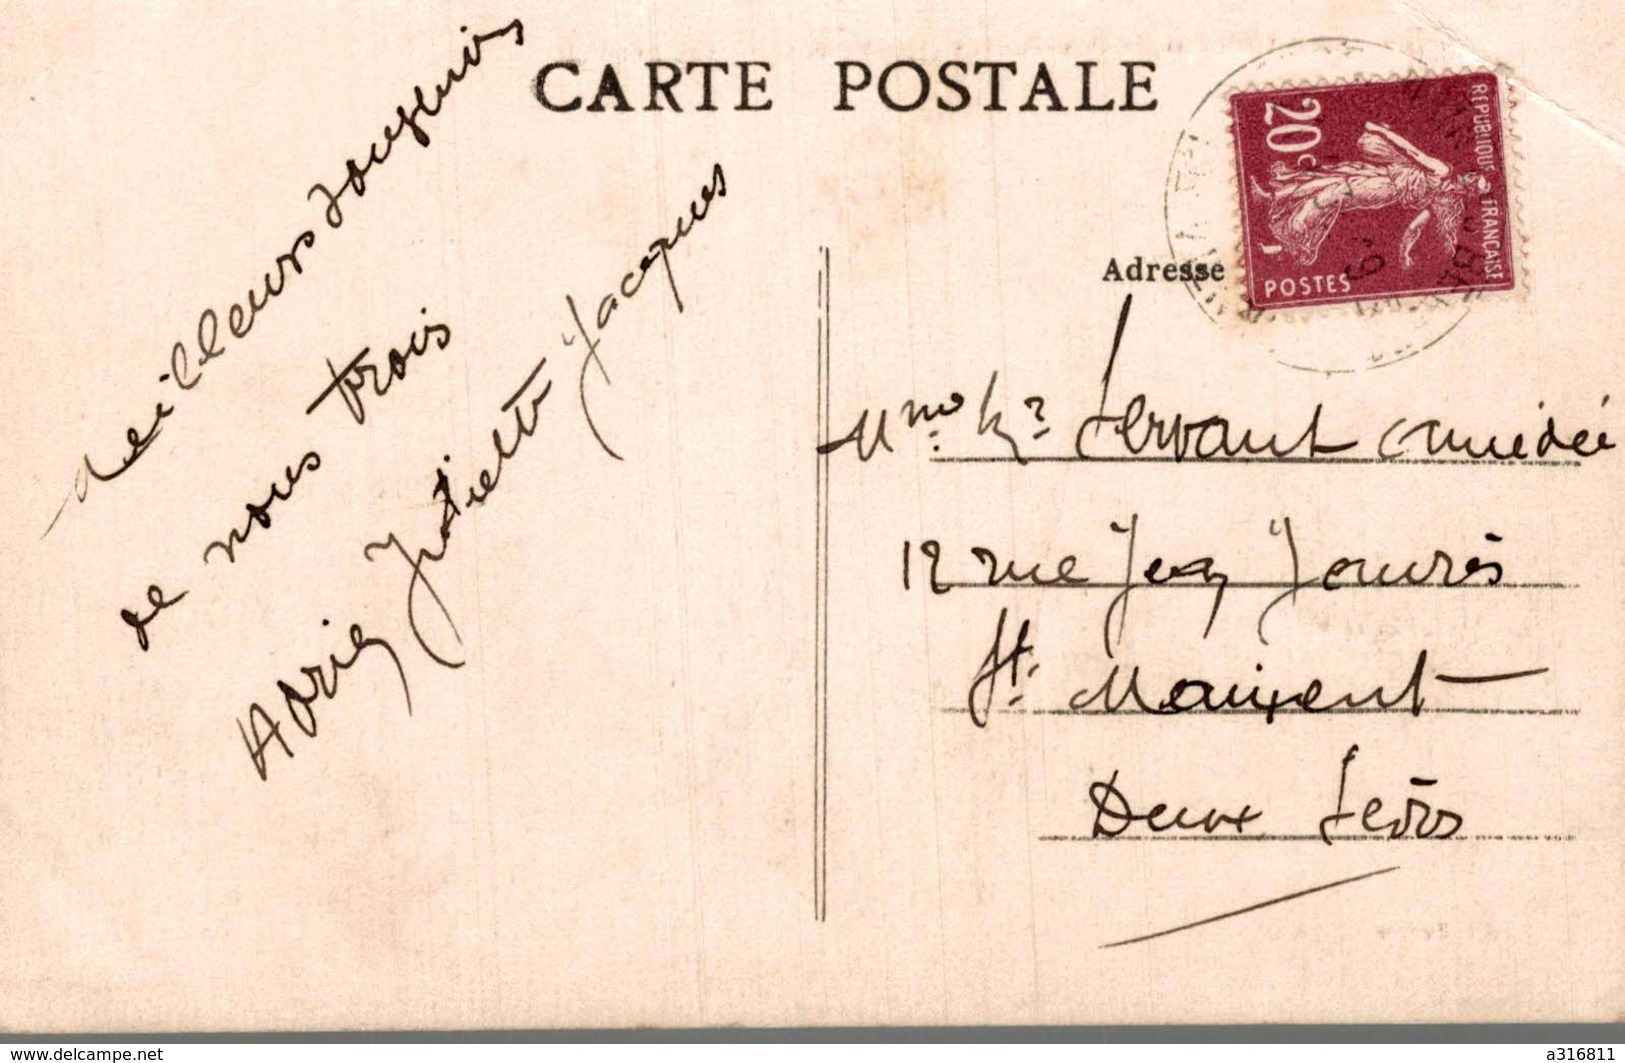 CARTE POSTALE
Meilleurs souvenirs
de nous trois
Adrien Juliette Jacques
20c
REPUBLIQUE FRANÇAISE
POSTES
Adresse
Mme Mr Servant amédée
12 rue Jean Jaurès
St. Maixent
Deux Sèvres
www.delcampe.net
a316811